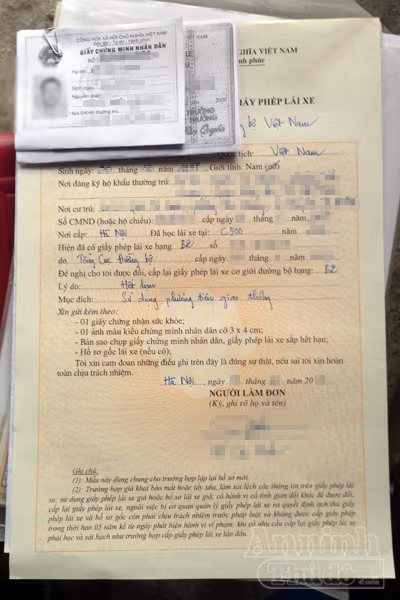 CỘNG HÒA XÃ HỘI CHỦ NGHĨA VIỆT NAM
Độc lập - Tự do - Hạnh phúc
GIẤY CHỨNG MINH NHÂN DÂN
SỐ
Họ tên
Sinh ngày
Nguyên quán
Nơi ĐKHK thường trú
TRƯỞNG
Quyền
GHĨA VIỆT NAM
nh phúc
IẤY PHÉP LÁI XE
bộ Việt Nam
Quốc tịch: Việt Nam
Sinh ngày tháng năm Giới tính: Nam (nữ)
Nơi đăng ký hộ khẩu thường trú:
Nơi cư trú:
Số CMND (hoặc hộ chiếu): cấp ngày tháng năm
Nơi cấp: Hà Nội Đã học lái xe tại: C500 năm
Hiện đã có giấy phép lái xe hạng B2 số
do Tổng Cục Đường bộ cấp ngày tháng năm
Đề nghị cho tôi được đổi, cấp lại giấy phép lái xe cơ giới đường bộ hạng: B2
Lý do: Hết hạn
Mục đích: Sử dụng phương tiện giao thông
Xin gửi kèm theo:
- 01 giấy chứng nhận sức khỏe;
- 01 ảnh màu kiểu chứng minh nhân dân cỡ 3 x 4 cm;
- Bản sao chụp giấy chứng minh nhân dân, giấy phép lái xe sắp hết hạn;
- Hồ sơ gốc lái xe (nếu có);
Tôi xin cam đoan những điều ghi trên đây là đúng sự thật, nếu sai tôi xin hoàn
toàn chịu trách nhiệm.
Hà Nội, ngày tháng năm 20
NGƯỜI LÀM ĐƠN
(Ký, ghi rõ họ và tên)
Ghi chú:
(1): Mẫu này dùng chung cho trường hợp lập lại hồ sơ mới.
(2): Trường hợp giả khai báo mất hoặc tẩy xóa, làm sai lệch các thông tin trên giấy phép lái
xe; sử dụng giấy phép lái xe hoặc hồ sơ lái xe giả; có hành vi cố tình gian dối khác để được đổi,
cấp lại giấy phép lái xe, ngoài việc bị cơ quan quản lý giấy phép lái xe ra quyết định tịch thu giấy
phép lái xe và hồ sơ gốc còn phải chịu trách nhiệm trước pháp luật và không được cấp giấy phép
trong thời hạn 05 năm kể từ ngày phát hiện hành vi vi phạm; khi có nhu cầu cấp lại giấy phép lái xe
phải học và sát hạch như trường hợp cấp giấy phép lái xe lần đầu.
An ninh
Thủ đô